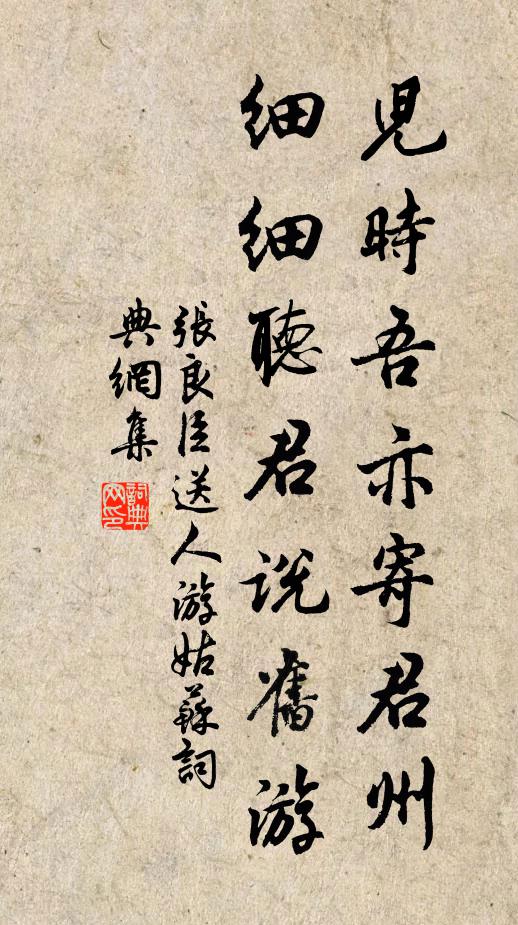 兒時吾亦寄君州
細細聽君説舊游
張良臣送人游姑蘇詞
典網集
詞典网印